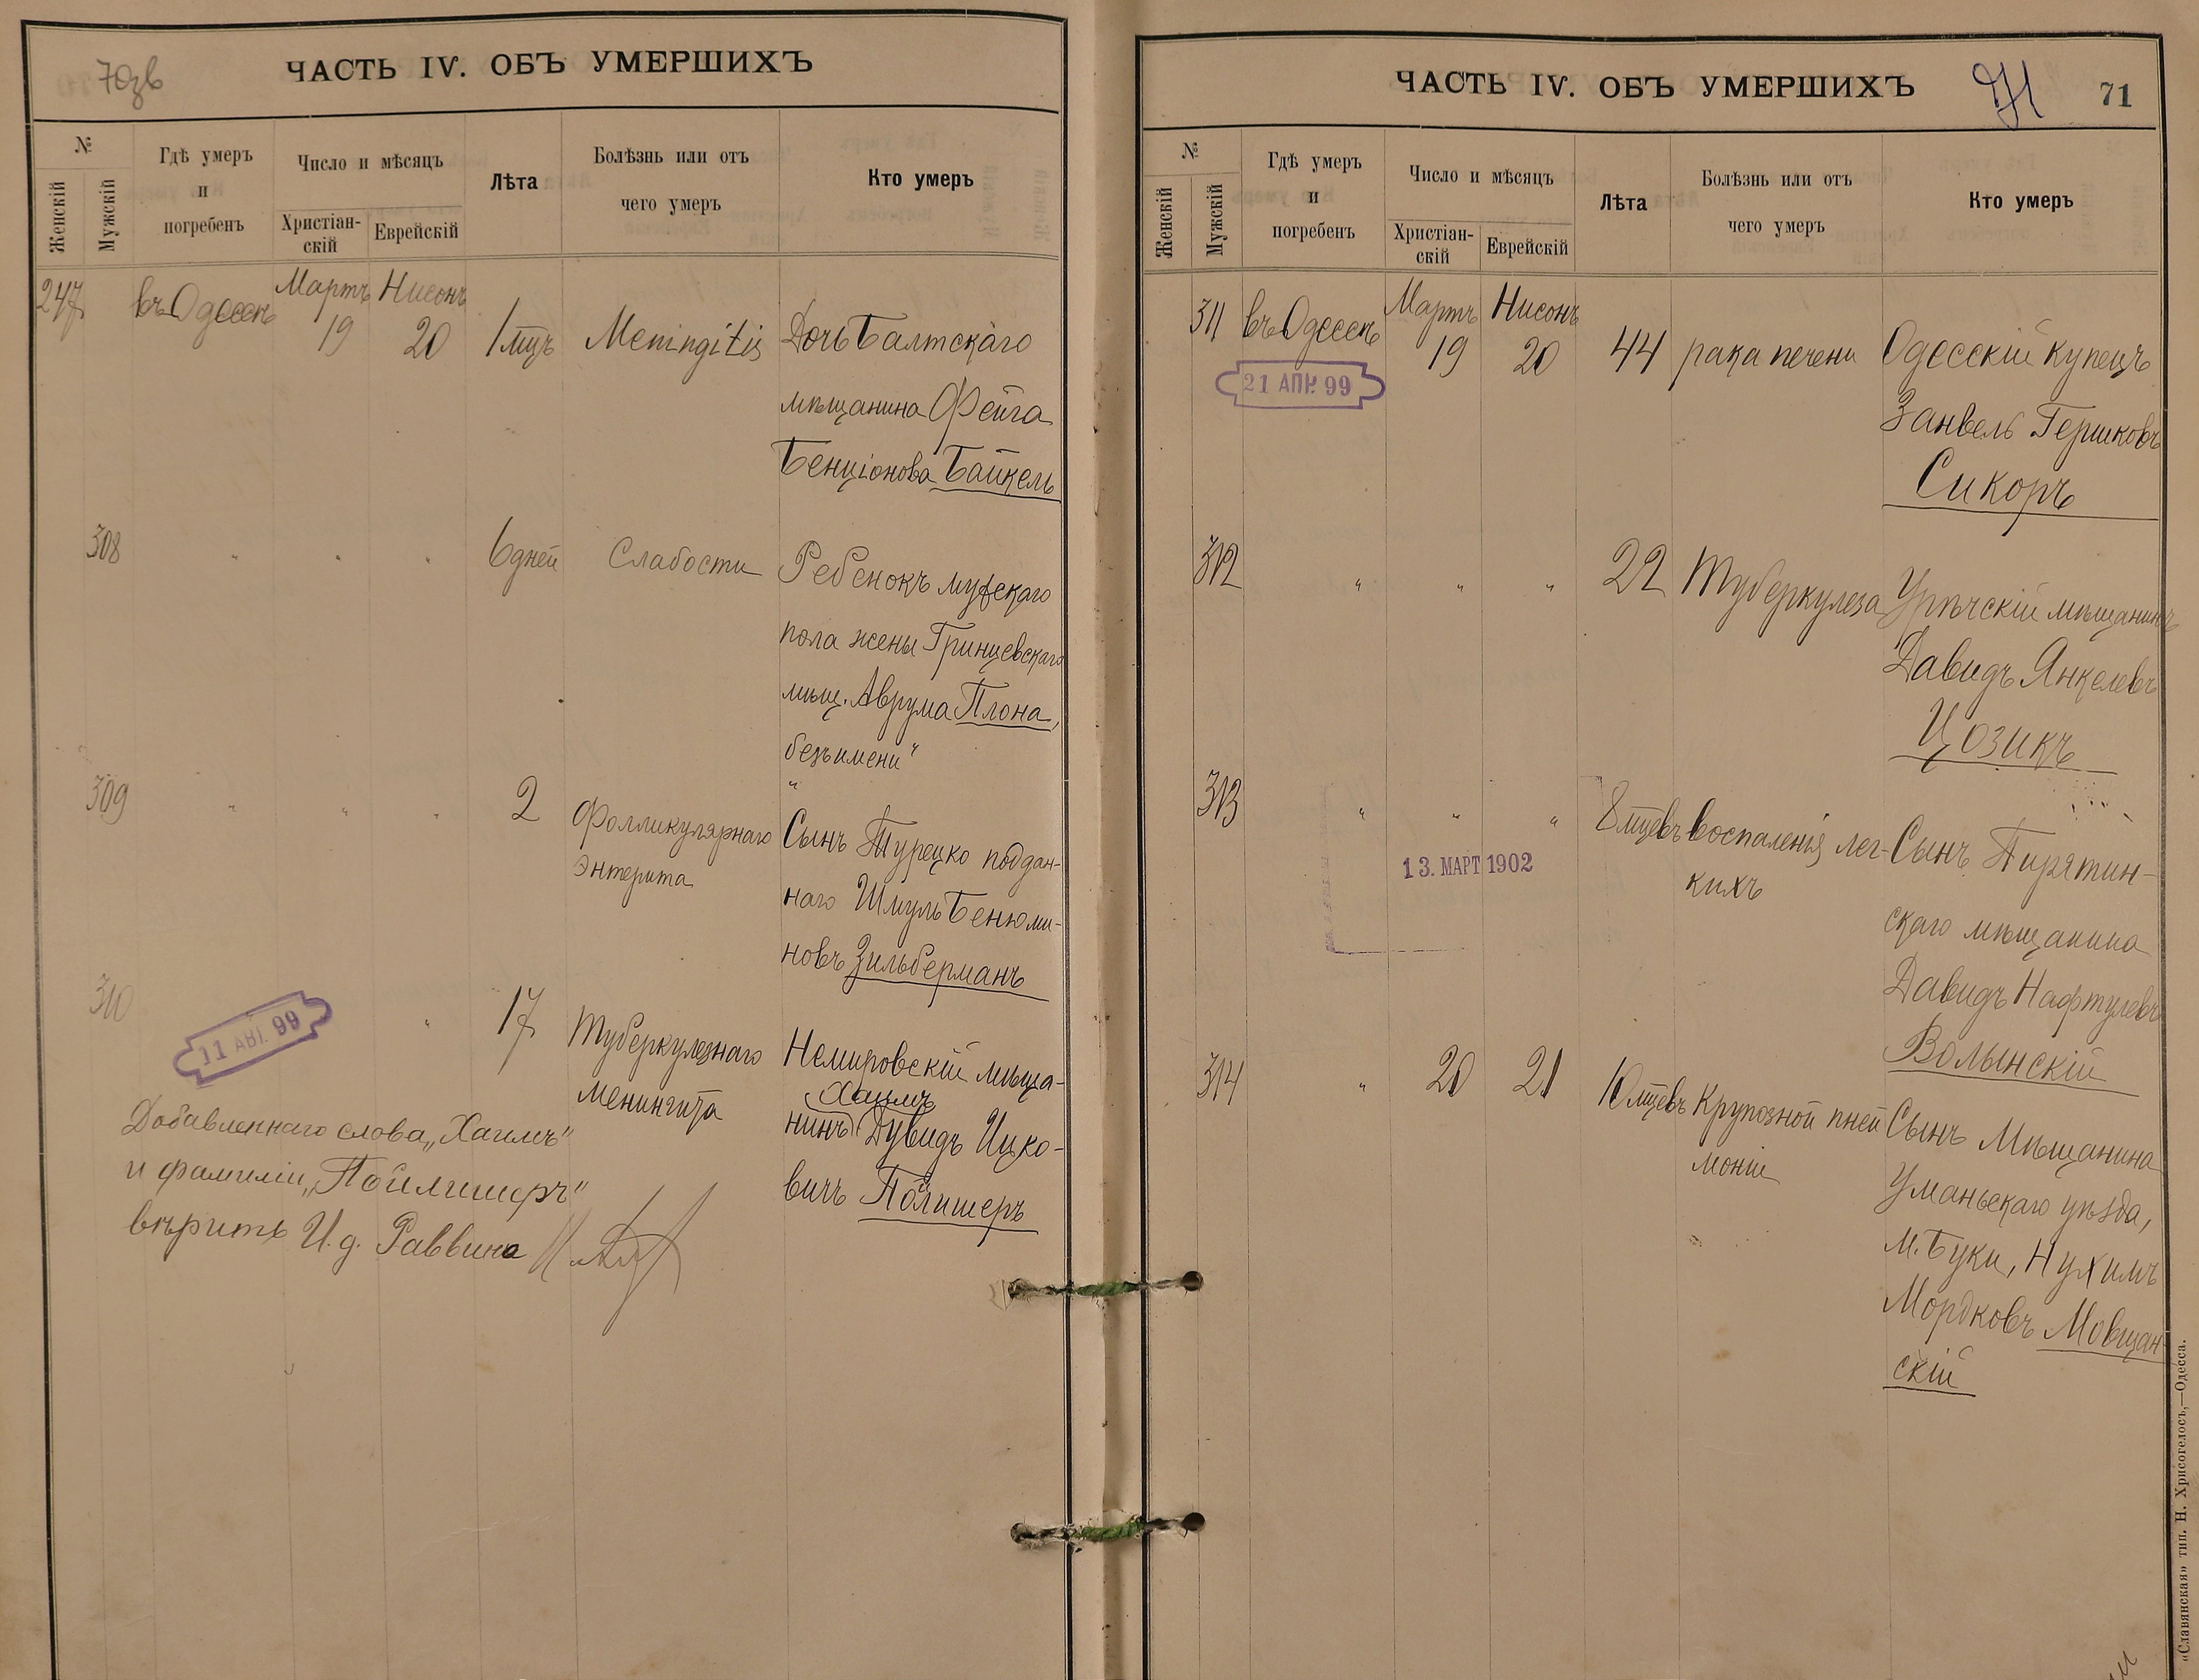 70зв
ЧАСТЬ IV. ОБЪ УМЕРШИХЪ
№
Женскій
Мужскій
Гдѣ умеръ
и
погребенъ
Число и мѣсяцъ
Христіан-
скій
Еврейскій
Лѣта
Болѣзнь или отъ
чего умеръ
Кто умеръ
247 въ Одессѣ Мартъ 19 Нисонъ 20 1 мцъ Meningitis Дочь Балтскаго
мѣщанина Фейга
Бенціонова Байкель
308 " " " 6 дней Слабости Ребенокъ мужскаго
пола жены Гринцевскаго
мѣщ. Аврума Плона,
безъ имени"
309 " " " 2 Фолликулярнаго "
энтерита Сынъ Турецко поддан-
наго Шмуль Бенюми-
новъ Зильберманъ
310 " 17 Туберкулезнаго Немировскій мѣща-
11 АВГ. 99
менингита Хаимъ
нинъ Дувидъ Ицко-
вичъ Полишеръ
й
Добавленнаго слова „Хаимъ"
и фамиліи „Пойлишеръ"
вѣрить И. д. Раввина
ЧАСТЬ IV. ОБЪ УМЕРШИХЪ
71
71
№
Женскій
Мужскій
Гдѣ умеръ
и
погребенъ
Число и мѣсяцъ
Христіан-
скій
Еврейскій
Лѣта
Болѣзнь или отъ
чего умеръ
Кто умеръ
311 въ Одессѣ Мартъ 19 Нисонъ 20 44 рака печени Одесскій купецъ
21 АПР. 99
Занвель Гершковъ
Сикоръ
312 " " " 22 Туберкулеза мѣщанинъ
Давидъ Янкелевъ
Цозикъ
313 " " " 8 мцевъ воспаленія лег- Сынъ Пирятин-
13. МАРТ 1902
кихъ
скаго мѣщанина
Давидъ Нафтулевъ
Волынскій
314 " 20 21 10 мцевъ Крупозной пней Сынъ Мѣщанина
моніи
Уманьскаго уѣзда,
м. Буки, Нухимъ
Мордковъ Мовшан-
скій
«Славянская» тип. Н. Хрисогелосъ,—Одесса.